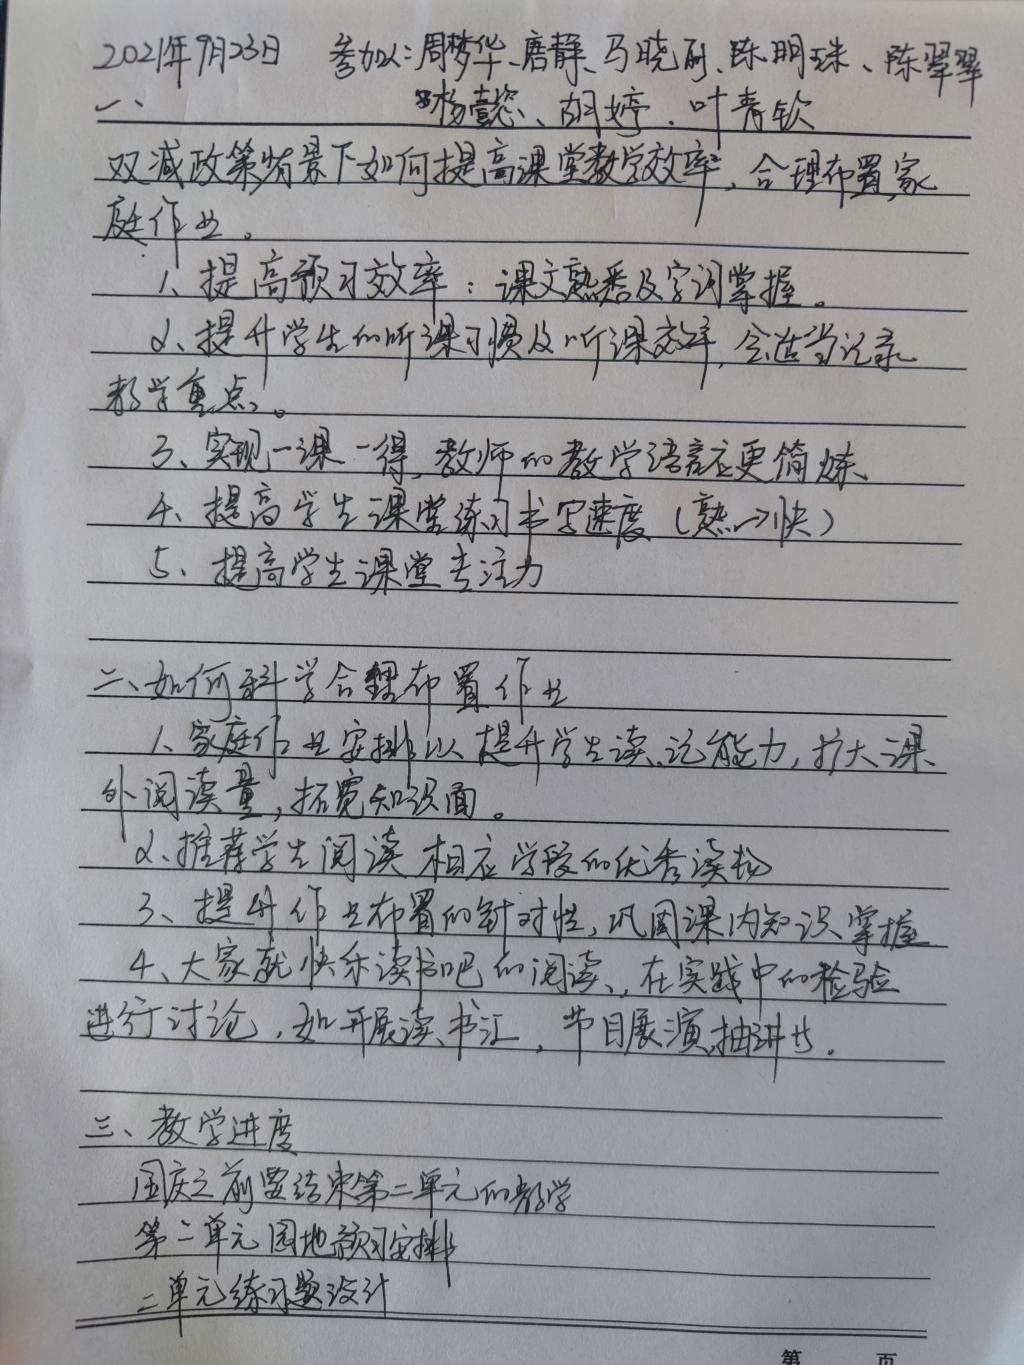 2021年9月23日 参加人:周梦华、唐静、马晓丽、陈明珠、陈翠翠
一、 杨懿恣、胡婷、叶青钦
双减政策背景下如何提高课堂教学效率,合理布置家
庭作业。
1、提高预习效率:课文熟悉及字词掌握。
2、提升学生的听课习惯及听课效率,会适当记录
教学重点。
3、实现一课一得,教师的教学语言应更简炼
4、提高学生课堂练习书写速度(熟→快)
5、提高学生课堂专注力
二、如何科学合理布置作业
1、家庭作业安排以提升学生读、记能力,扩大课
外阅读量,拓宽知识面。
2、推荐学生阅读相应学段的优秀读物
3、提升作业布置的针对性,巩固课内知识掌握
4、大家就快乐读书吧的阅读、在实践中的检验
进行讨论,如开展读书汇,节目展演,抽讲
三、教学进度
国庆之前要结束第二单元的教学
第二单元园地预习安排
二单元练习题设计
第 页